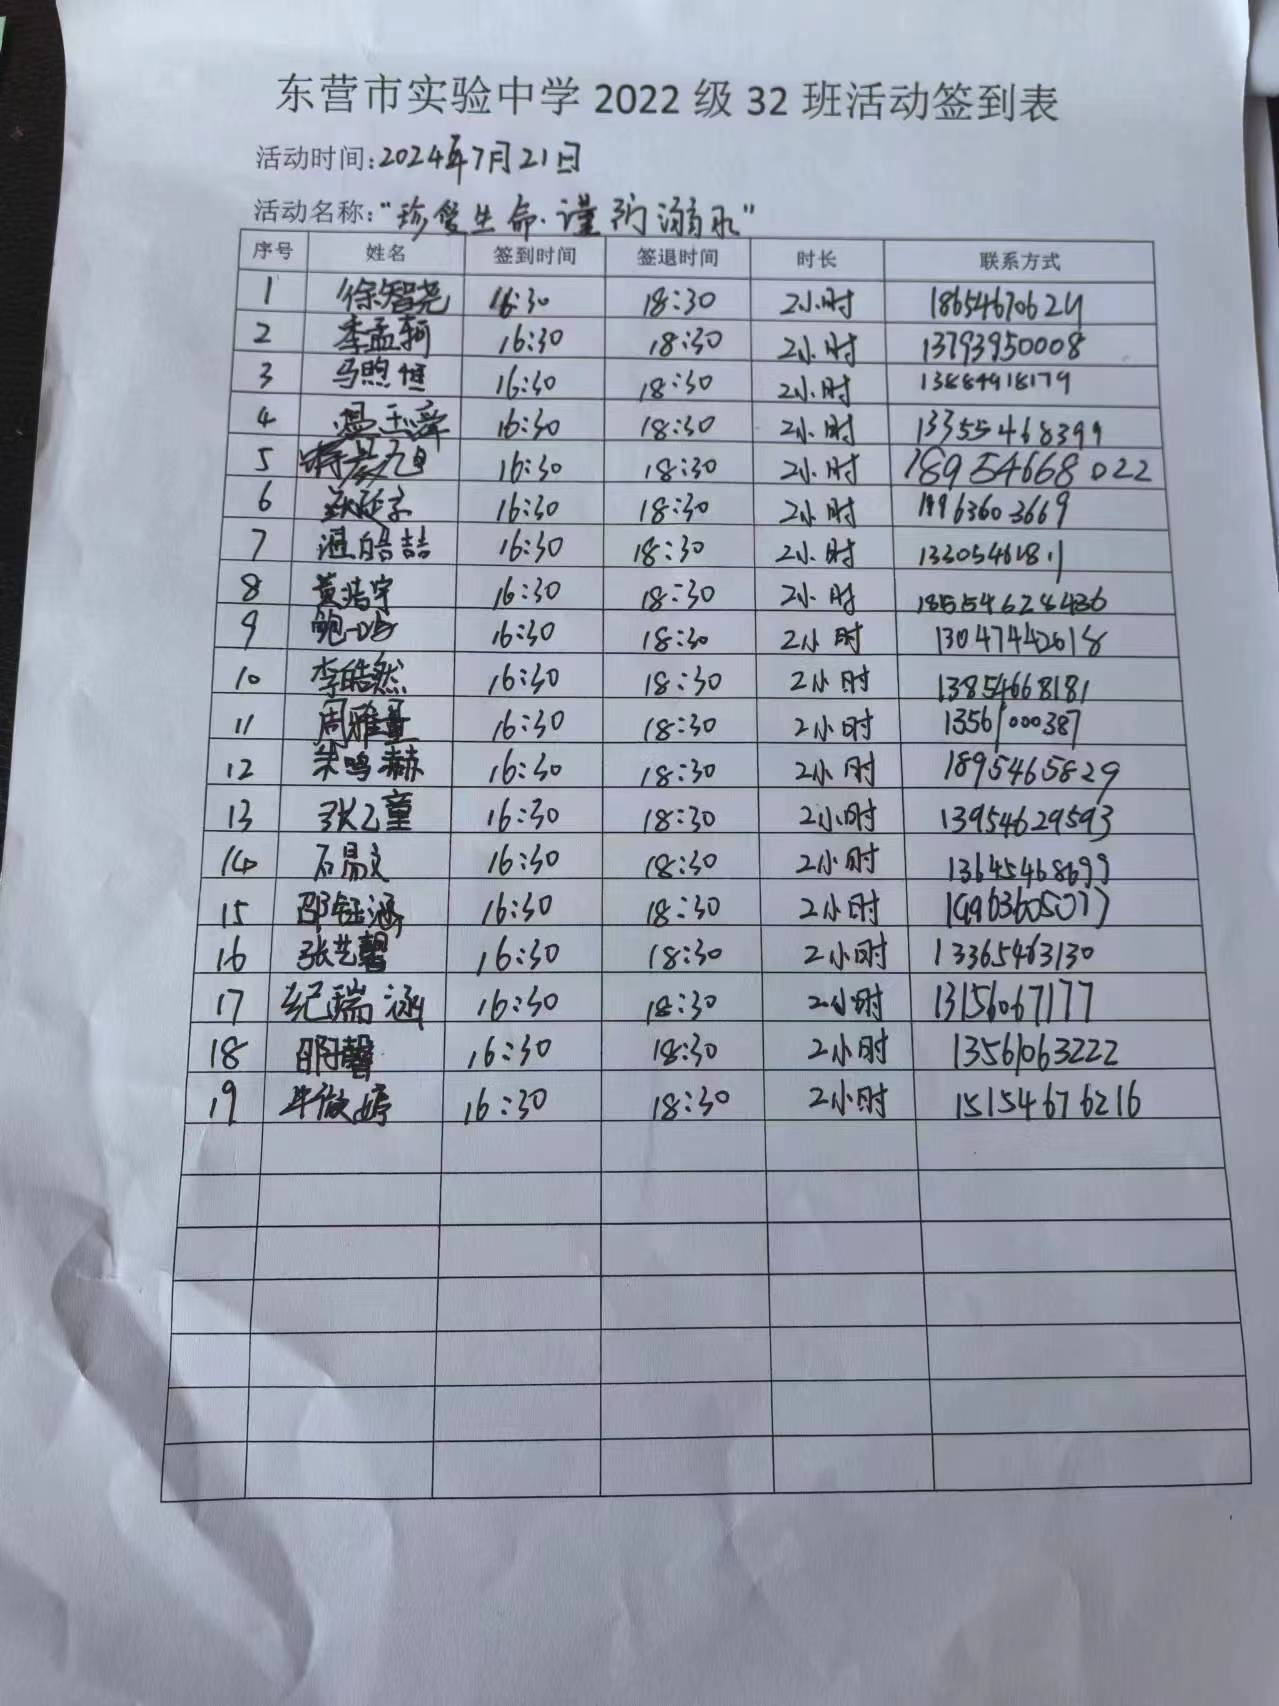 东营市实验中学 2022 级 32 班活动签到表
活动时间:2024年7月21日
活动名称:"珍爱生命·谨防溺水"
序号 姓名 签到时间 签退时间 时长 联系方式
1 徐智尧 16:30 18:30 2小时
2 李孟轲 16:30 18:30 2小时 13793950008
3 马煦恒 16:30 18:30 2小时 13884918179
4 温玉舜 16:30 18:30 2小时 13355468399
5 16:30 18:30 2小时 18954668022
6 16:30 18:30 2小时 19963603669
7 温皓喆 16:30 18:30 2小时
8 黄浩宇 16:30 18:30 2小时 18554628436
9 鲍一鸣 16:30 18:30 2小时 13047442618
10 李皓然 16:30 18:30 2小时 13854668181
11 周雅量 16:30 18:30 2小时 13561000387
12 朱鸣赫 16:30 18:30 2小时 1895465829
13 张乙童 16:30 18:30 2小时 13954629593
14 石易文 16:30 18:30 2小时 13645468699
15 邵钰涵 16:30 18:30 2小时 19963605077
16 张艺馨 16:30 18:30 2小时 13365463130
17 纪瑞涵 16:30 18:30 2小时 13156067177
18 16:30 18:30 2小时 13561063222
19 16:30 18:30 2小时 15154676216